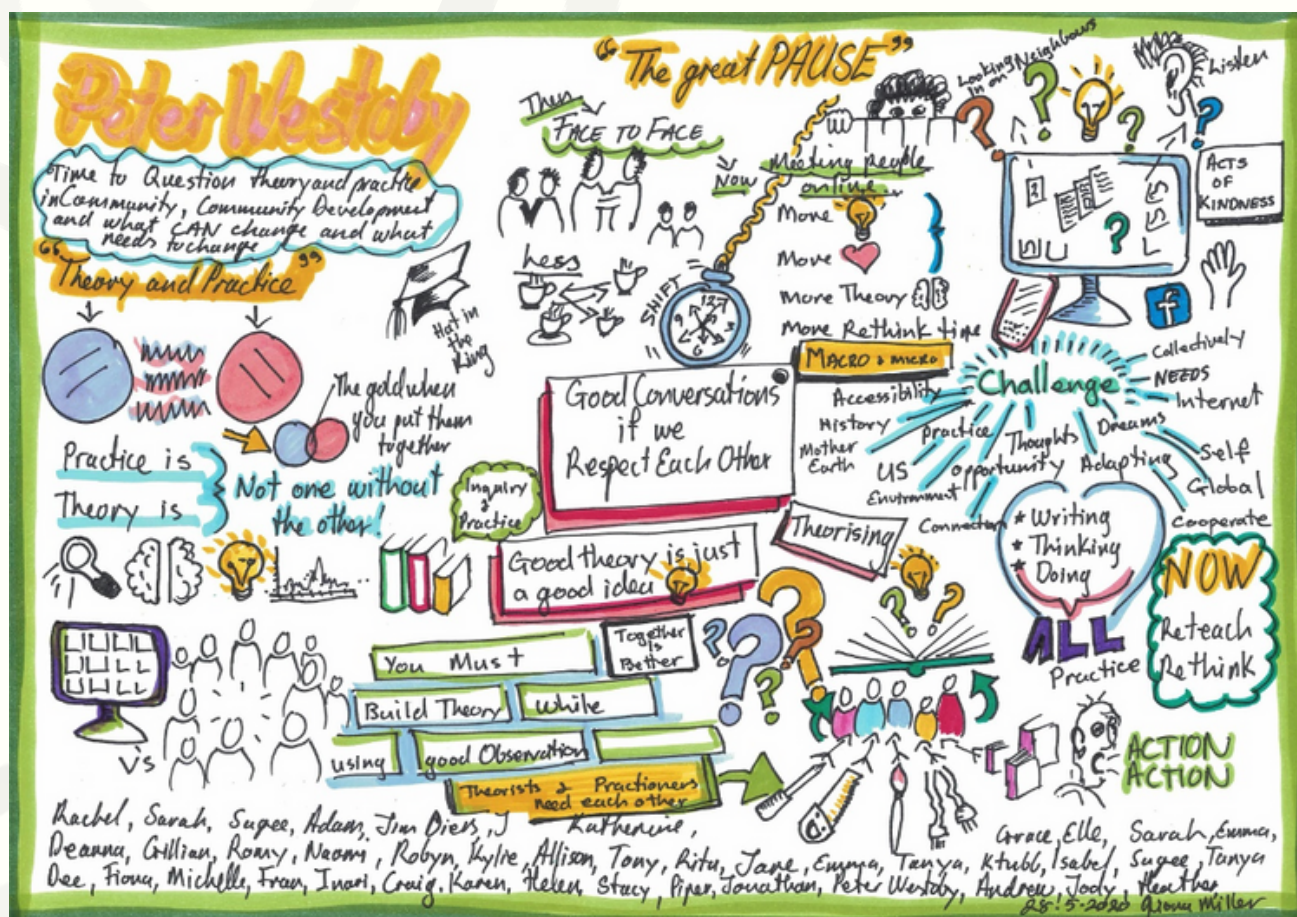 Peter Westoby
Time to Question theory and practice
in Community, Community Development
and what CAN change and what
needs to change
"Theory and Practice"
Hat in
the
Ring
The gold when
you put them
together
Practice is
Theory is
Not one without
the other!
"The great PAUSE"
Then
FACE TO FACE
Now
Meeting people
online
Less
SHIFT
More
More
More Theory
More Rethink time
MACRO & MICRO
Looking in on Neighbours
Listen
ACTS
OF
KINDNESS
f
Good Conversations
if we
Respect Each Other
Inquiry
&
Practice
Good theory is just
a good idea
Theorising
Challenge
Accessibility
History
Mother
Earth
US
Environment
Practice
Opportunity
Connection
Thoughts
Dreams
Adapting
Collectively
NEEDS
Internet
Self
Global
Cooperate
* Writing
* Thinking
* Doing
ALL
Practice
NOW
Reteach
Rethink
ACTION
ACTION
V's
You Must
Together
Is
Better
Build Theory
while
using
good Observation
Theorists & Practioners
need each other
Rachel, Sarah, Sugee, Adam, Jim Diers, J Katherine, Grace, Elle, Sarah, Emma,
Deanna, Gillian, Romy, Naomi, Robyn, Kylie, Allison, Tony, Ritu, Jane, Emma, Tanya, Ktubb, Isabel, Sugee, Tanya
Dee, Fiona, Michelle, Fran, Inari, Craig, Karen, Helen, Stacy, Piper, Jonathan, Peter Westoby, Andrew, Jody, Heather
28.5.2020 Fiona Miller